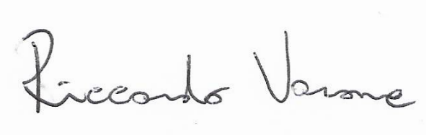 Riccardo Varone